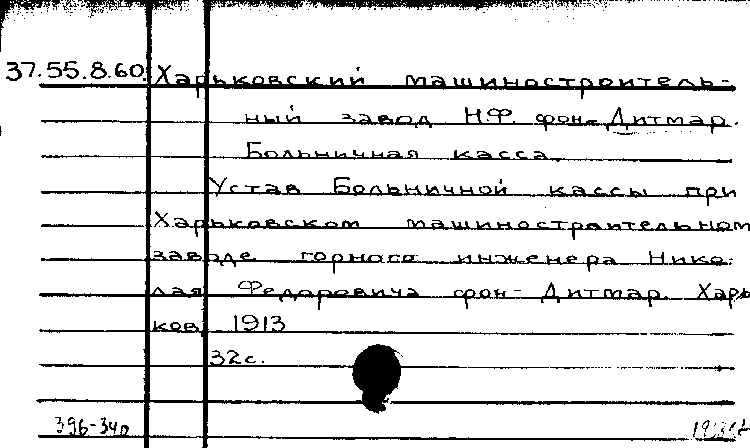 37.55.8.60. Харьковский машиностроитель-
ный завод Н.Ф. фон-Дитмар.
Больничная касса.
Устав Больничной кассы при
Харьковском машиностроительном
заводе горного инженера Нико-
лая Федоровича фон-Дитмар. Харь
ков, 1913
32с.